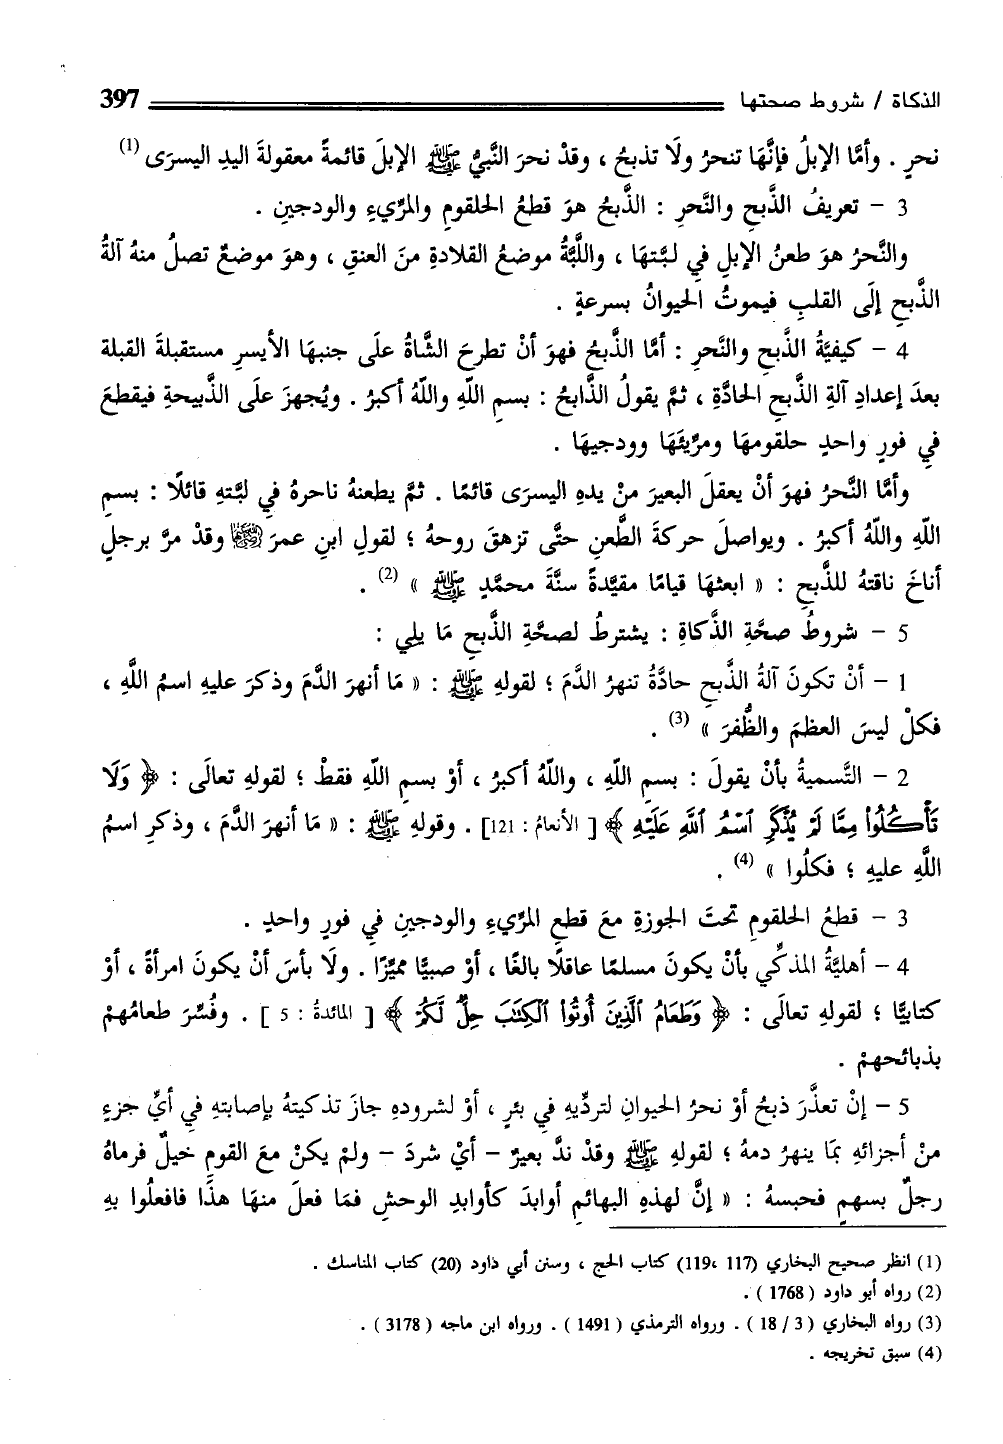 الذكاة / شروط صحتها 397
نحرٍ . وأمَّا الإبلُ فإنَّهَا تنحرُ ولَا تذبحُ ، وقدْ نحرَ النَّبيُّ ﷺ الإبلَ قائمةً معقولةَ اليدِ اليسرَى (1)
3 - تعريفُ الذَّبحِ والنَّحرِ : الذَّبحُ هوَ قطعُ الحلقومِ والمرِّيءِ والودجينِ .
والنَّحرُ هوَ طعنُ الإبلِ فِي لبَّتهَا ، واللَّبَّةُ موضعُ القلادةِ منَ العنقِ ، وهوَ موضعٌ تصلُ منهُ آلةُ
الذَّبحِ إلَى القلبِ فيموتُ الحيوانُ بسرعةٍ .
4 - كيفيَّةُ الذَّبحِ والنَّحرِ : أمَّا الذَّبحُ فهوَ أنْ تطرحَ الشَّاةُ علَى جنبهَا الأيسرِ مستقبلةَ القبلة
بعدَ إعدادِ آلةِ الذَّبحِ الحادَّةِ ، ثمَّ يقولُ الذَّابحُ : بسمِ اللَّهِ واللَّهُ أكبرُ . ويُجهزَ علَى الذَّبيحةِ فيقطعَ
فِي فورٍ واحدٍ حلقومهَا ومرِّيئَهَا وودجيهَا .
وأمَّا النَّحرُ فهوَ أنْ يعقلَ البعيرَ منْ يدهِ اليسرَى قائمًا . ثمَّ يطعنهُ ناحرهُ فِي لبَّتهِ قائلًا : بسمِ
اللَّهِ واللَّهُ أكبرُ . ويواصلَ حركةَ الطَّعنِ حتَّى تزهقَ روحهُ ؛ لقولِ ابنِ عمرَ ﷺ وقدْ مرَّ برجلٍ
أناخَ ناقتهُ للذَّبحِ : « ابعثهَا قيامًا مقيَّدةً سنَّةَ محمَّدٍ ﷺ » (2) .
5 - شروطُ صحَّةِ الذَّكاةِ : يشترطُ لصحَّةِ الذَّبحِ مَا يلِي :
1 - أنْ تكونَ آلةُ الذَّبحِ حادَّةً تنهرُ الدَّمَ ؛ لقولهِ ﷺ : « مَا أنهرَ الدَّمَ وذكرَ عليهِ اسمُ اللَّهِ ،
فكلْ ليسَ العظمَ والظُّفرَ » (3) .
2 - التَّسميةُ بأنْ يقولَ : بسمِ اللَّهِ ، واللَّهُ أكبرُ ، أوْ بسمِ اللَّهِ فقطْ ؛ لقولهِ تعالَى : ﴿ وَلَا
تَأْكُلُوا مِمَّا لَمْ يُذْكَرِ ٱسْمُ ٱللَّهِ عَلَيْهِ ﴾ [ الأنعامُ : 121] . وقولهِ ﷺ : « مَا أنهرَ الدَّمَ ، وذكرِ اسمُ
اللَّهِ عليهِ ؛ فكلُوا » (4) .
3 - قطعُ الحلقومِ تحتَ الجوزةِ معَ قطعِ المرِّيءِ والودجينِ فِي فورٍ واحدٍ .
4 - أهليَّةُ المذكِّي بأنْ يكونَ مسلمًا عاقلًا بالغًا ، أوْ صبيًّا مميِّزًا . ولَا بأسَ أنْ يكونَ امرأةً ، أوْ
كتابيًّا ؛ لقولهِ تعالَى : ﴿ وَطَعَامُ ٱلَّذِينَ أُوتُوا ٱلْكِتَٰبَ حِلٌّ لَّكُمْ ﴾ [ المائدةُ : 5 ] . وفُسِّرَ طعامُهمْ
بذبائحهمْ .
5 - إنْ تعذَّرَ ذبحُ أوْ نحرُ الحيوانِ لتردِّيهِ فِي بئرٍ ، أوْ لشرودهِ جازَ تذكيتهُ بإصابتهِ فِي أيِّ جزءٍ
منْ أجزائهِ بمَا ينهرُ دمهُ ؛ لقولهِ ﷺ وقدْ ندَّ بعيرٌ - أيْ شردَ - ولمْ يكنْ معَ القومِ خيلٌ فرماهُ
رجلٌ بسهمٍ فحبسهُ : « إنَّ لهذهِ البهائمِ أوابدَ كأوابدِ الوحشِ فمَا فعلَ منهَا هذَا فافعلُوا بهِ
(1) انظر صحيح البخاري (117 ،119) كتاب الحج ، وسنن أبي داود (20) كتاب المناسك .
(2) رواه أبو داود ( 1768 ) .
(3) رواه البخاري ( 3 / 18 ) . ورواه الترمذي ( 1491 ) . ورواه ابن ماجه ( 3178 ) .
(4) سبق تخريجه .